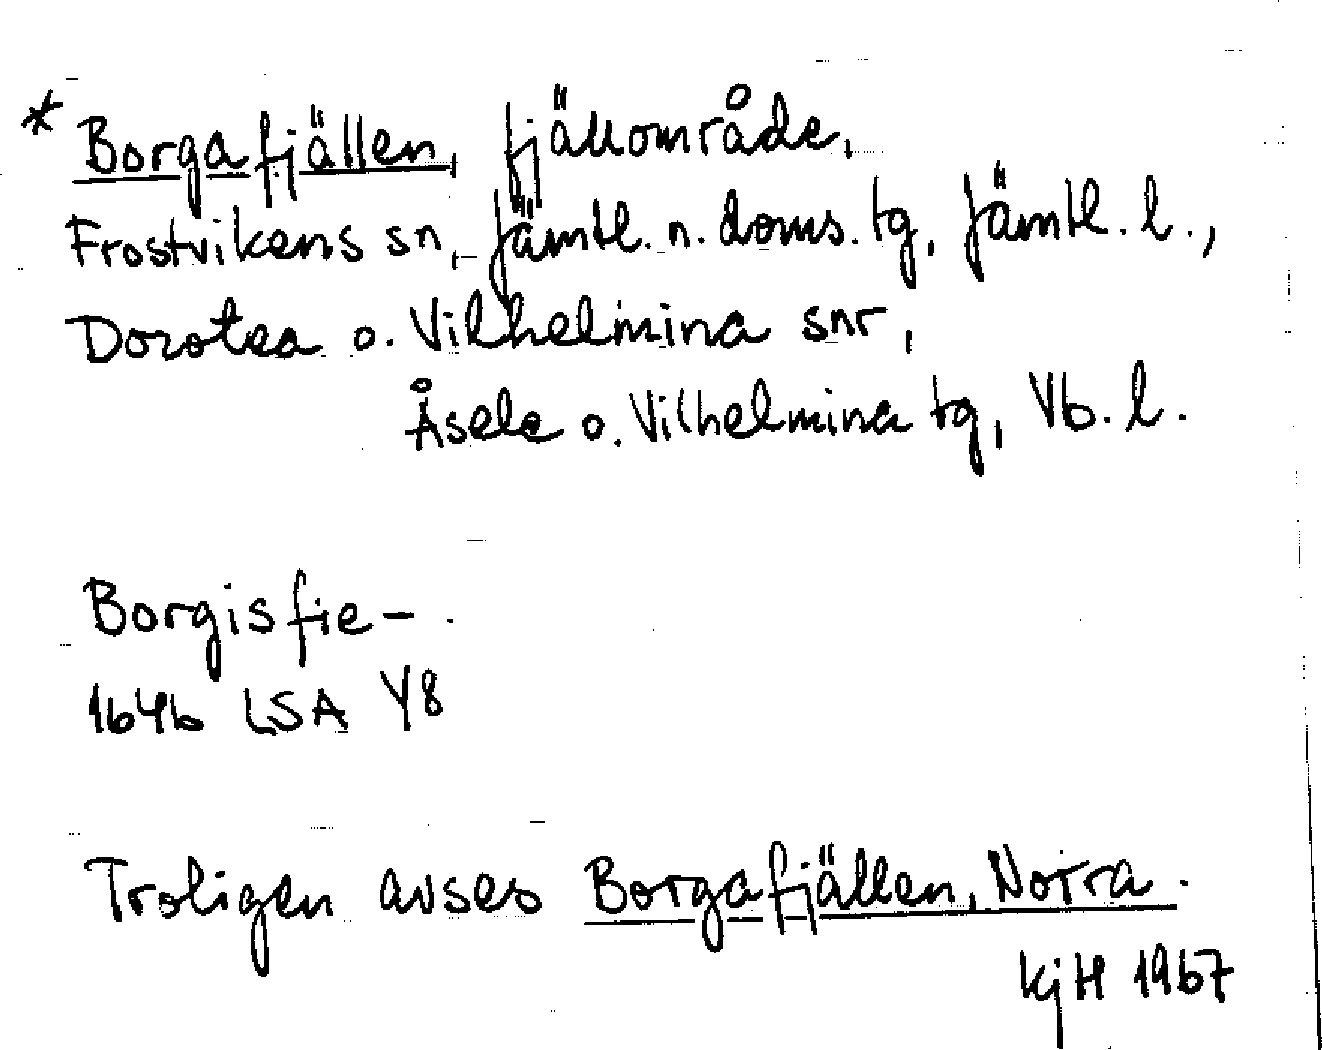 * Borgafjällen, fjällområde,
Frostvikens sn, Jämtl. n. doms. tg, Jämtl. l.,
Dorotea o. Vilhelmina snr,
Åsele o. Vilhelmina tg, Vb. l.
Borgisfie-
1646 LSA Y8
Troligen avses Borgafjällen, Norra.
KjH 1967